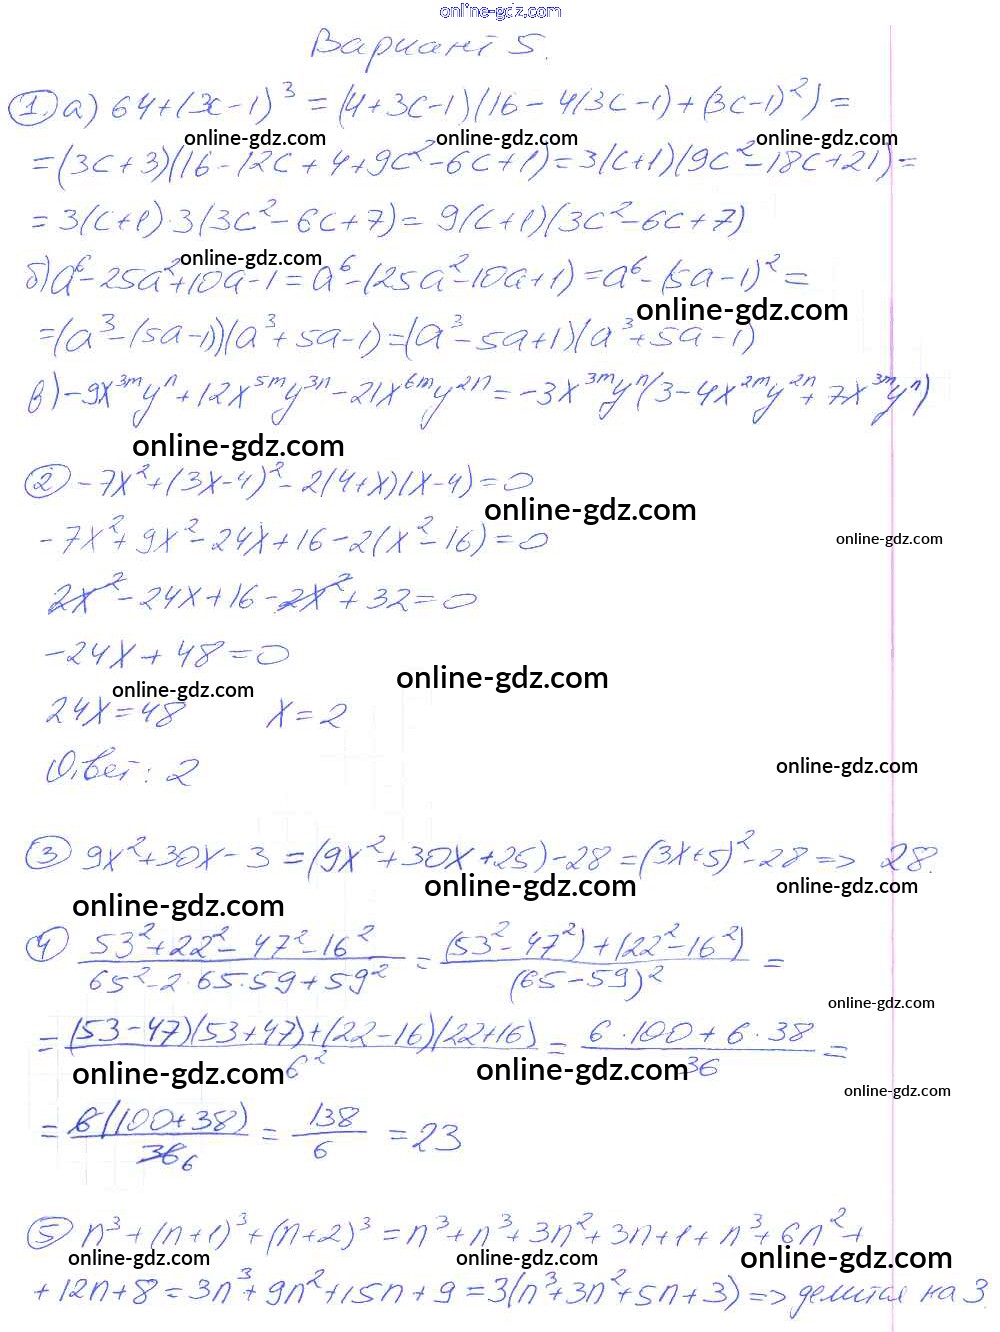 online-gdz.com
Вариант 5.
① а) 64+(3c-1)³ = (4+3c-1)(16-4(3c-1)+(3c-1)²) =
online-gdz.com online-gdz.com online-gdz.com
= (3c+3)(16-12c+4+9c²-6c+1) = 3(c+1)(9c²-18c+21) =
= 3(c+1)·3(3c²-6c+7) = 9(c+1)(3c²-6c+7)
online-gdz.com
б) a⁶-25a²+10a-1 = a⁶-(25a²-10a+1) = a⁶-(5a-1)² =
online-gdz.com
= (a³-(5a-1))(a³+5a-1) = (a³-5a+1)(a³+5a-1)
в) -9x³ᵐyⁿ + 12x⁵ᵐy³ⁿ - 21x⁶ᵐy²ⁿ = -3x³ᵐyⁿ(3-4x²ᵐy²ⁿ+7x³ᵐyⁿ)
online-gdz.com
② -7x²+(3x-4)²-2(4+x)(x-4)=0
online-gdz.com
-7x²+9x²-24x+16-2(x²-16)=0
online-gdz.com
2x²-24x+16-2x²+32=0
-24x+48=0
online-gdz.com online-gdz.com
24x=48 x=2
Ответ: 2
online-gdz.com
③ 9x²+30x-3 = (9x²+30x+25)-28 = (3x+5)²-28 => 28.
online-gdz.com online-gdz.com
online-gdz.com
④ (53²+22²-47²-16²)/(65²-2·65·59+59²) = ((53²-47²)+(22²-16²))/(65-59)² =
online-gdz.com
= ((53-47)(53+47)+(22-16)(22+16))/6² = (6·100+6·38)/36 =
online-gdz.com online-gdz.com
online-gdz.com
= 6(100+38)/36 6 = 138/6 = 23
online-gdz.com online-gdz.com online-gdz.com
⑤ n³+(n+1)³+(n+2)³ = n³+n³+3n²+3n+1+n³+6n²+
online-gdz.com online-gdz.com online-gdz.com
+12n+8 = 3n³+9n²+15n+9 = 3(n³+3n²+5n+3) => делится на 3